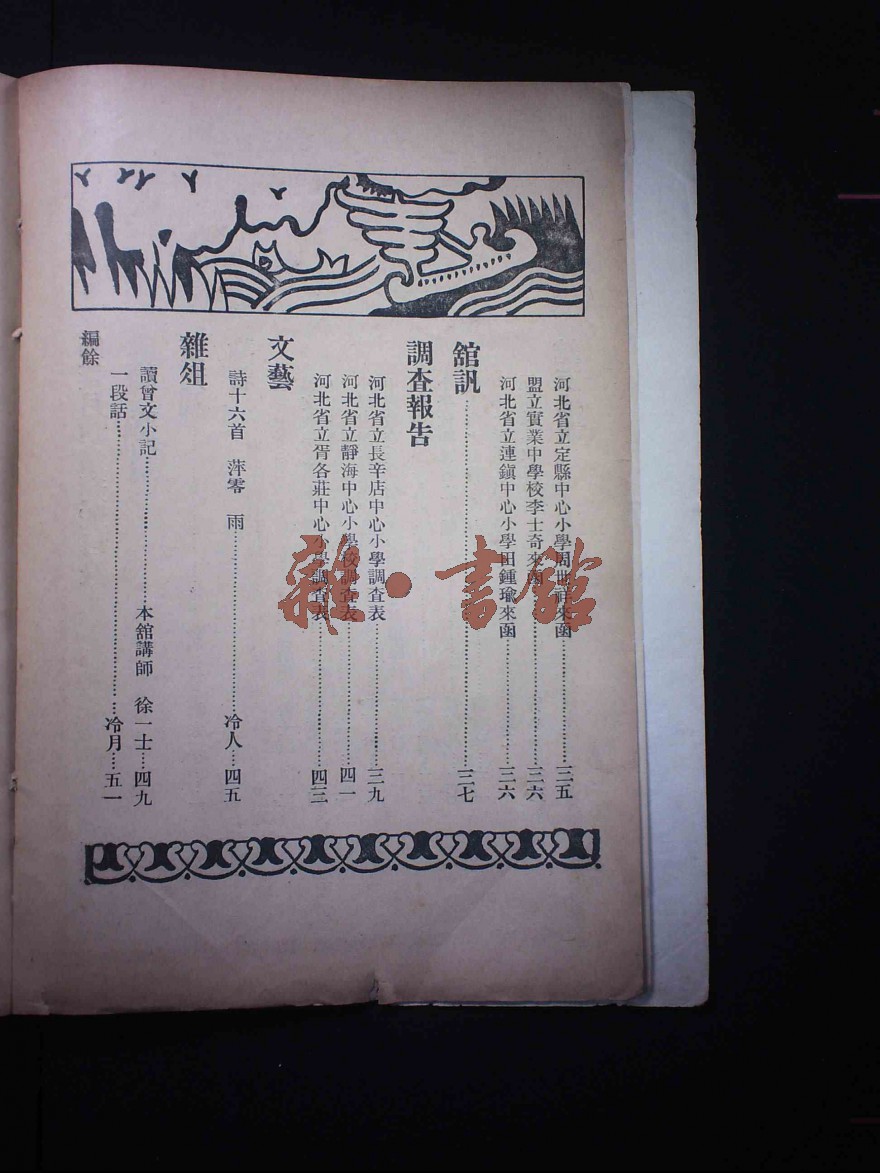 河北省立定縣中心小學周世祥來函……三五
盟立實業中學校李士奇來函……三六
河北省立連鎮中心小學田鍾瑜來函……三六
舘訊……三七
調查報告
河北省立長辛店中心小學調查表……三九
河北省立靜海中心小學校調查表……四一
河北省立胥各莊中心小學調查表……四三
文藝
詩十六首 萍零 雨……冷人……四五
雜俎
讀曾文小記……本舘講師 徐一士……四九
一段話……冷月……五一
編餘
雜·書舘